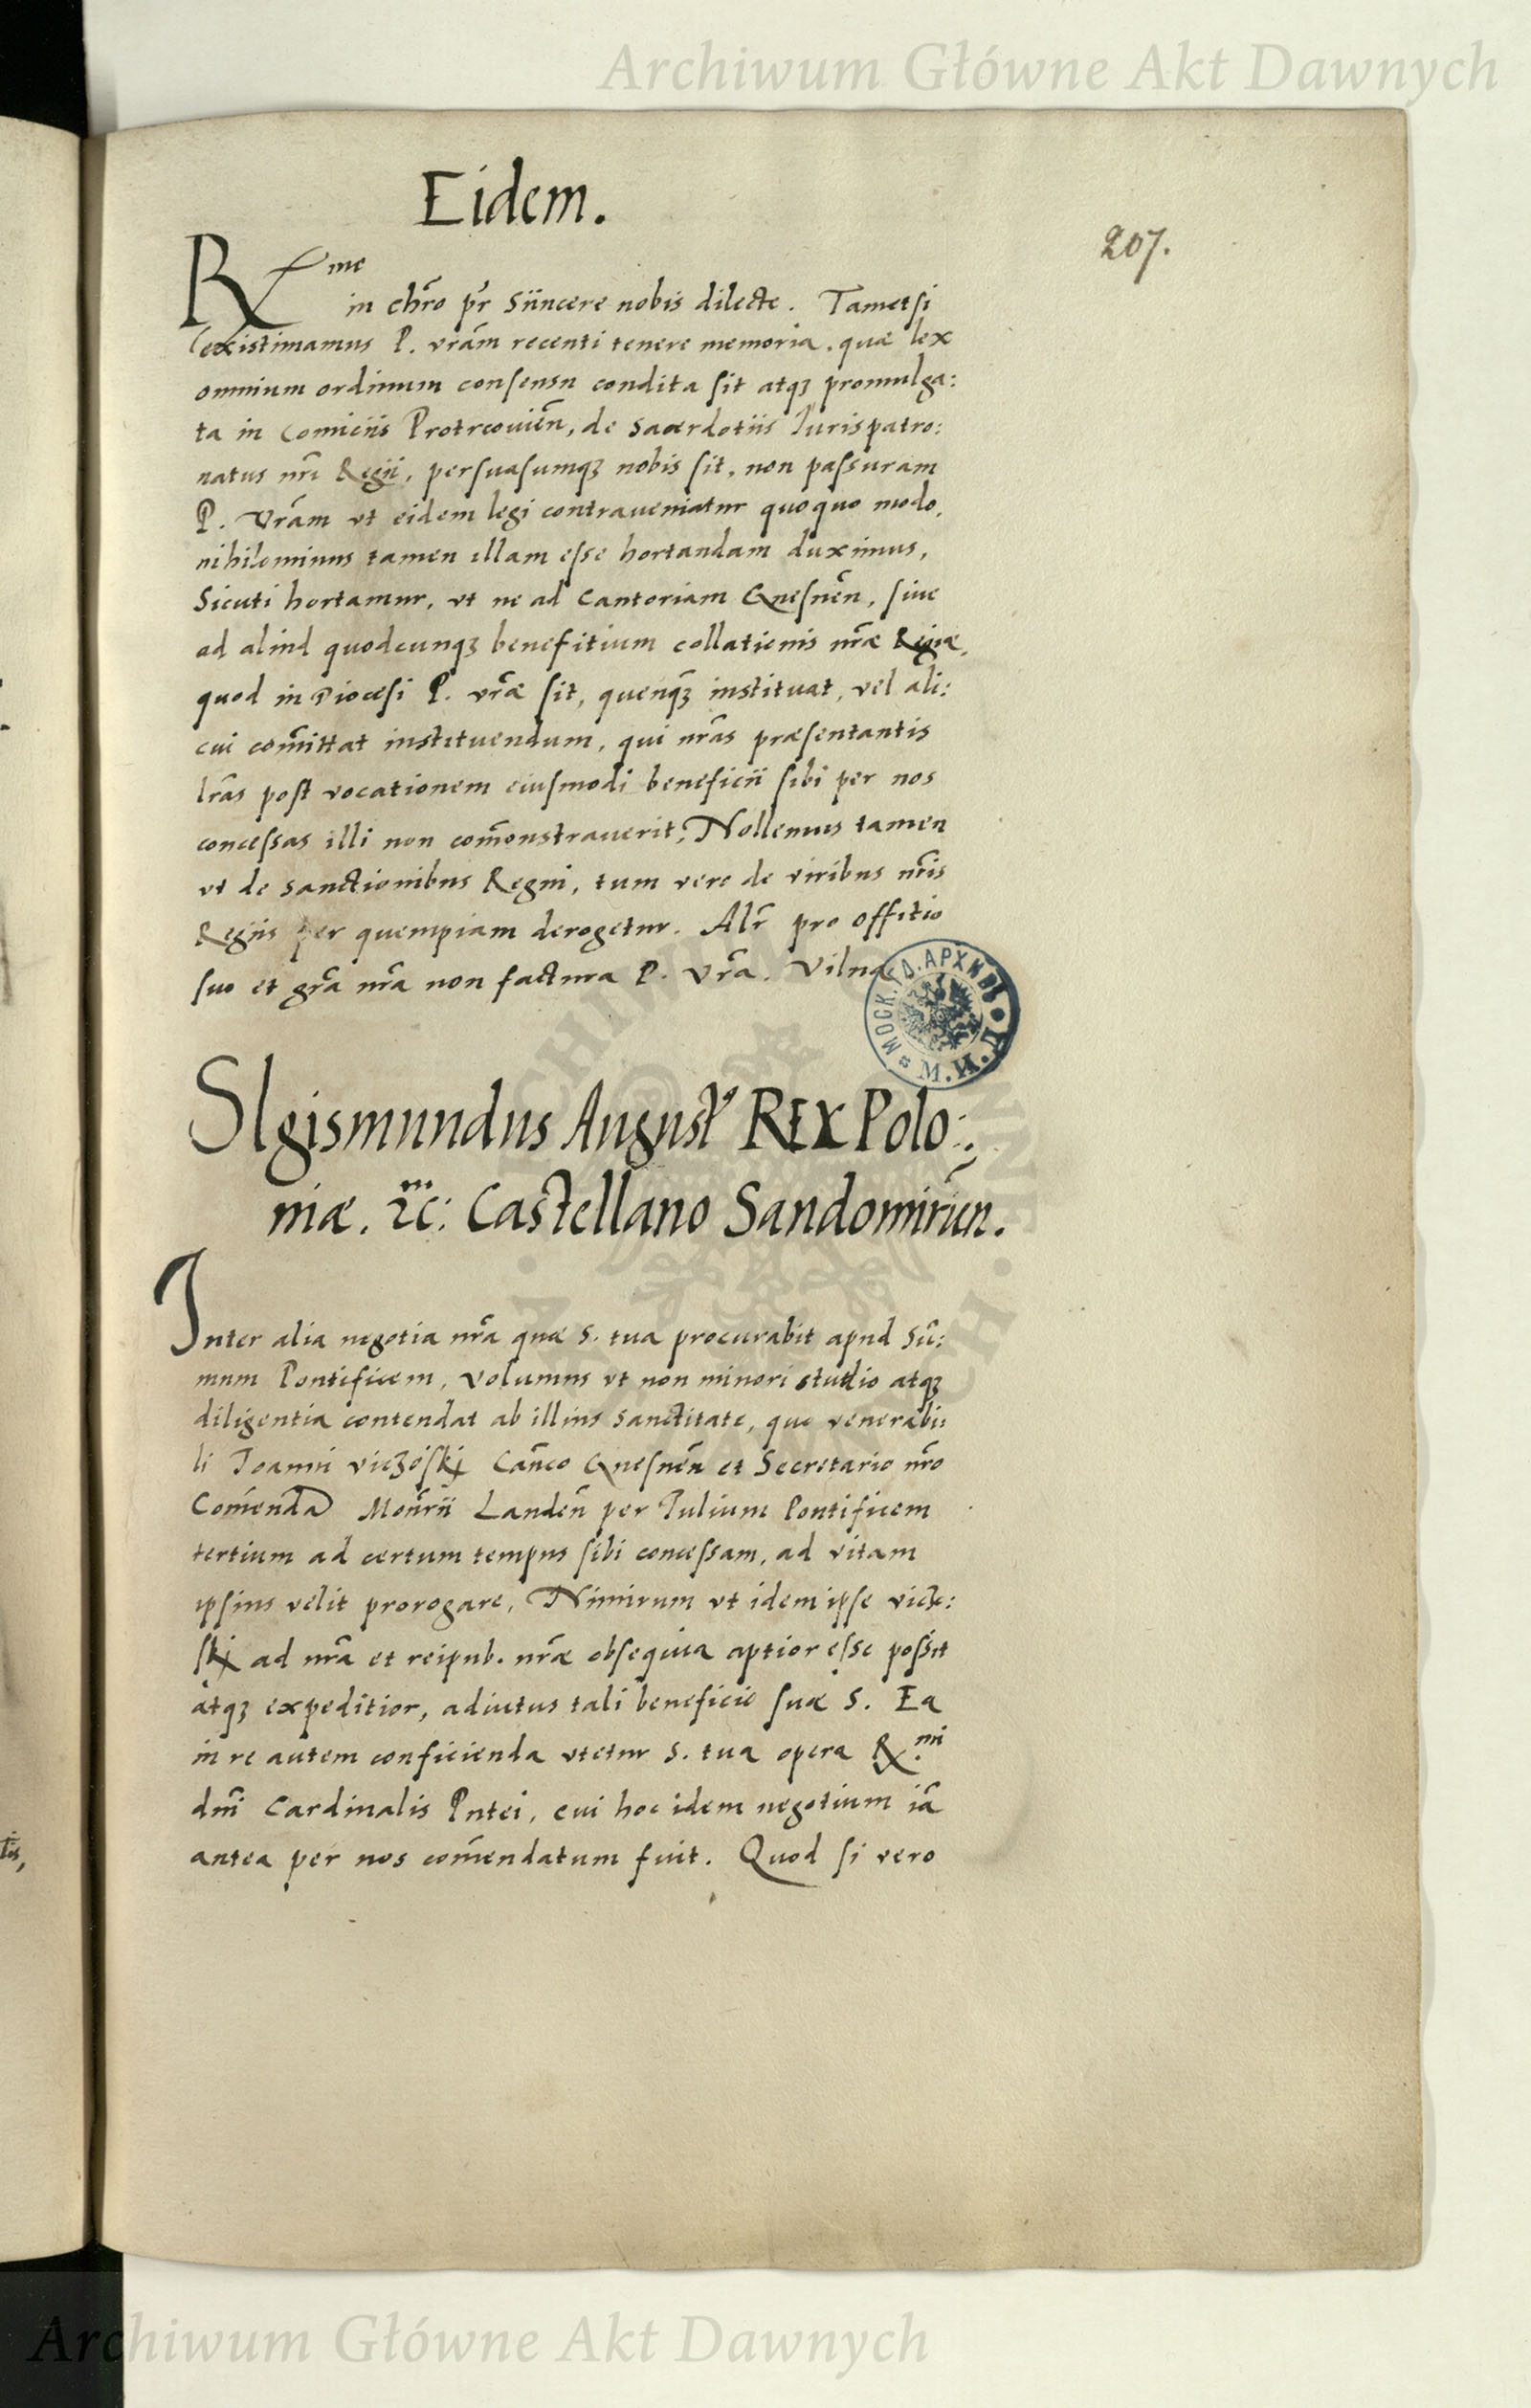 Archiwum Główne Akt Dawnych
Eidem.
207.
R<sup>me</sup> in chr̃o pr̃ Siincere nobis dilecte. Tametsi
existimamus P. vrãm recenti tenere memoria, quae lex
omnium ordinum consensu condita sit atqꝫ promulga:
ta in Comiciis Protrcouień, de Sacerdotiis Iurispatro:
natus nrĩ Regii, persuasumqꝫ nobis sit, non passuram
P. Vrãm vt eidem legi contraueniatur quoquo modo,
nihilominus tamen illam esse hortandam duximus,
Sicuti hortamur, vt ne ad Cantoriam Gnesnẽn, siue
ad aliud quodcunqꝫ benefitium collationis nrãe Regiae,
quod in Diocesi P. vrãe sit, quenqꝫ instituat, vel ali:
cui com̃ittat instituendum, qui nrãs praesentantis
lrãs post vocationem eiusmodi beneficii sibi per nos
concessas illi non com̃onstrauerit, Nollemus tamen
vt de sanctionibus Regni, tum vero de viribus nrĩs
Regiis per quempiam derogetur. Alr̃ pro offitio
suo et grã nrã non factura P. Vrã. Vilnae
МОСК. ГЛ. АРХИВЪ
М.И.Д.
SIgismundus August⁹ REX Polo:
niae. ꝛc: Castellano Sandomirień.
Inter alia negotia nrã quae S. tua procurabit apud Sũ:
mum Pontificem, volumus vt non minori studio atqꝫ
diligentia contendat ab illius sanctitate, quo venerabi:
li Joanni viczoſkj Cañco Gnesnẽn et Secretario nrõ
Com̃enda Moñrii Landeñ per Julium Pontificem
tertium ad certum tempus sibi concessam, ad vitam
ipsius velit prorogare, Nimirum vt idem ipse vicz:
ſkj ad nrã et reipub. nrãe obsequia aptior esse possit
atqꝫ expeditior, adiutus tali beneficio suae S. Ea
in re autem conficienda vtetur S. tua opera R<sup>mi</sup>
dnĩ Cardinalis Putei, cui hoc idem negotium iã
antea per nos com̃endatum fuit. Quod si vero
Archiwum Główne Akt Dawnych